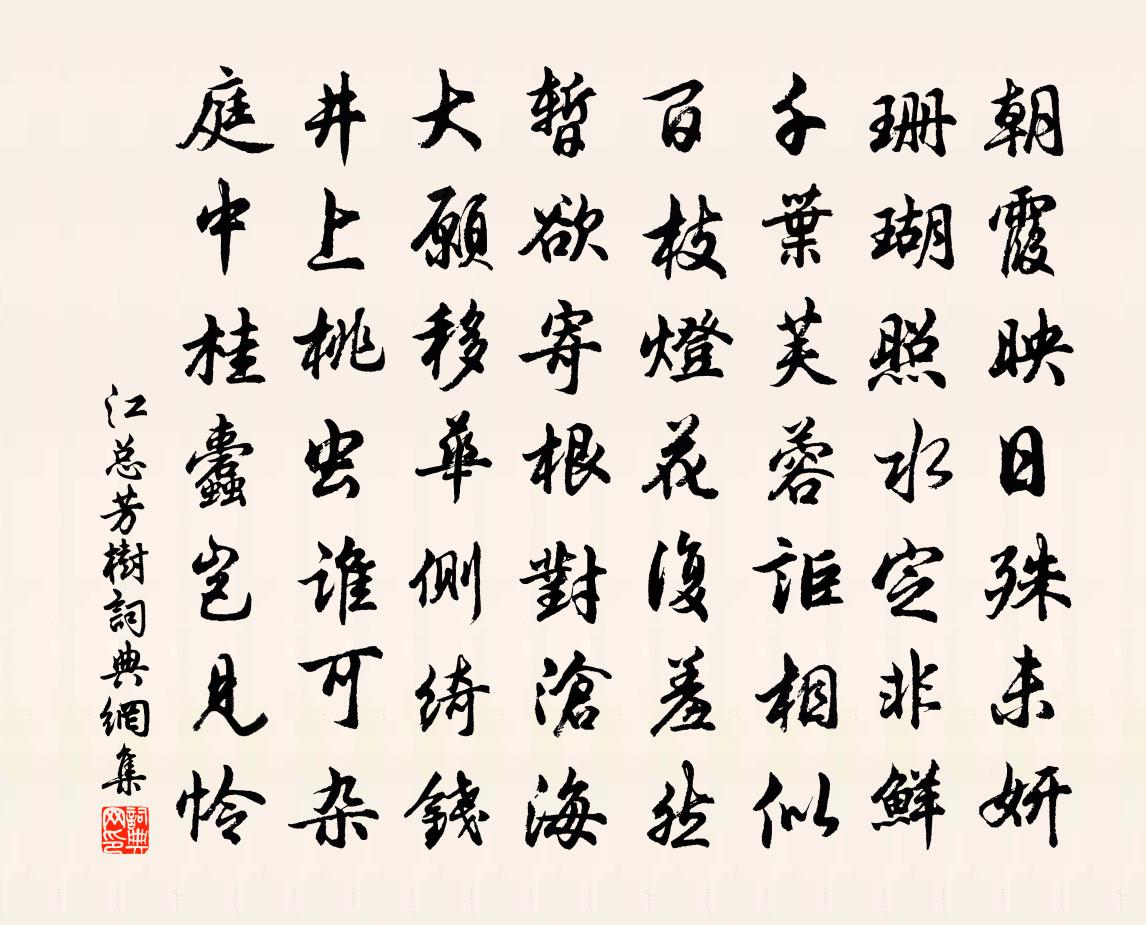 朝霞映日殊未妍
珊瑚照水定非鮮
千葉芙蓉詎相似
百枝燈花復羞然
暫欲寄根對滄海
大願移華側綺錢
井上桃虫誰可杂
庭中桂蠹豈見怜
江总芳樹詞典網集
詞典网印